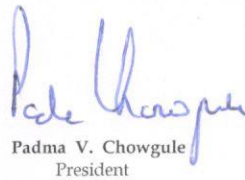 Padma Chowgule
Padma V. Chowgule
President